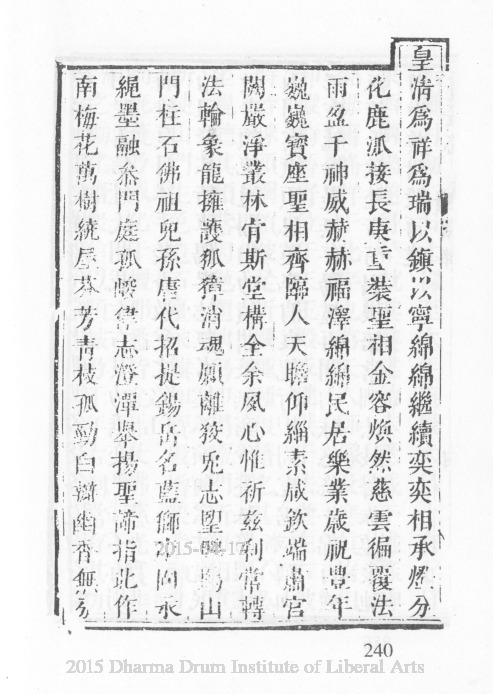 皇清為祥為瑞以鎮以寧綿綿繼續奕奕相承燈分
花鹿派接長庚重裝聖相金容煥然慈雲徧覆法
雨盈千神威赫赫福澤綿綿民居樂業歲祝豐年
巍巍寶座聖相齊臨人天瞻仰緇素咸欽端肅宮
闕嚴淨叢林官斯堂構全余夙心惟祈茲刹常轉
法輪象龍擁護狐獐消魂願離狡兎志堅山
門柱石佛祖兒孫唐代招提錫岳名藍獅永
繩墨融叅門庭孤峻偉志澄潭舉揚聖諦指此作
南梅花萬樹繞屋芬芳青枝孤勁白瓣幽香無分
2015-04-17
240
2015 Dharma Drum Institute of Liberal Arts